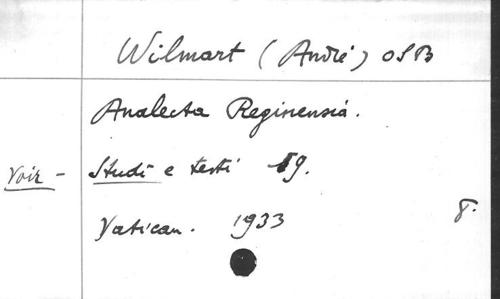 Wilmart (André) OSB
Analecta Reginensia.
Voir - Studi e testi 59.
Vatican. 1933 8.